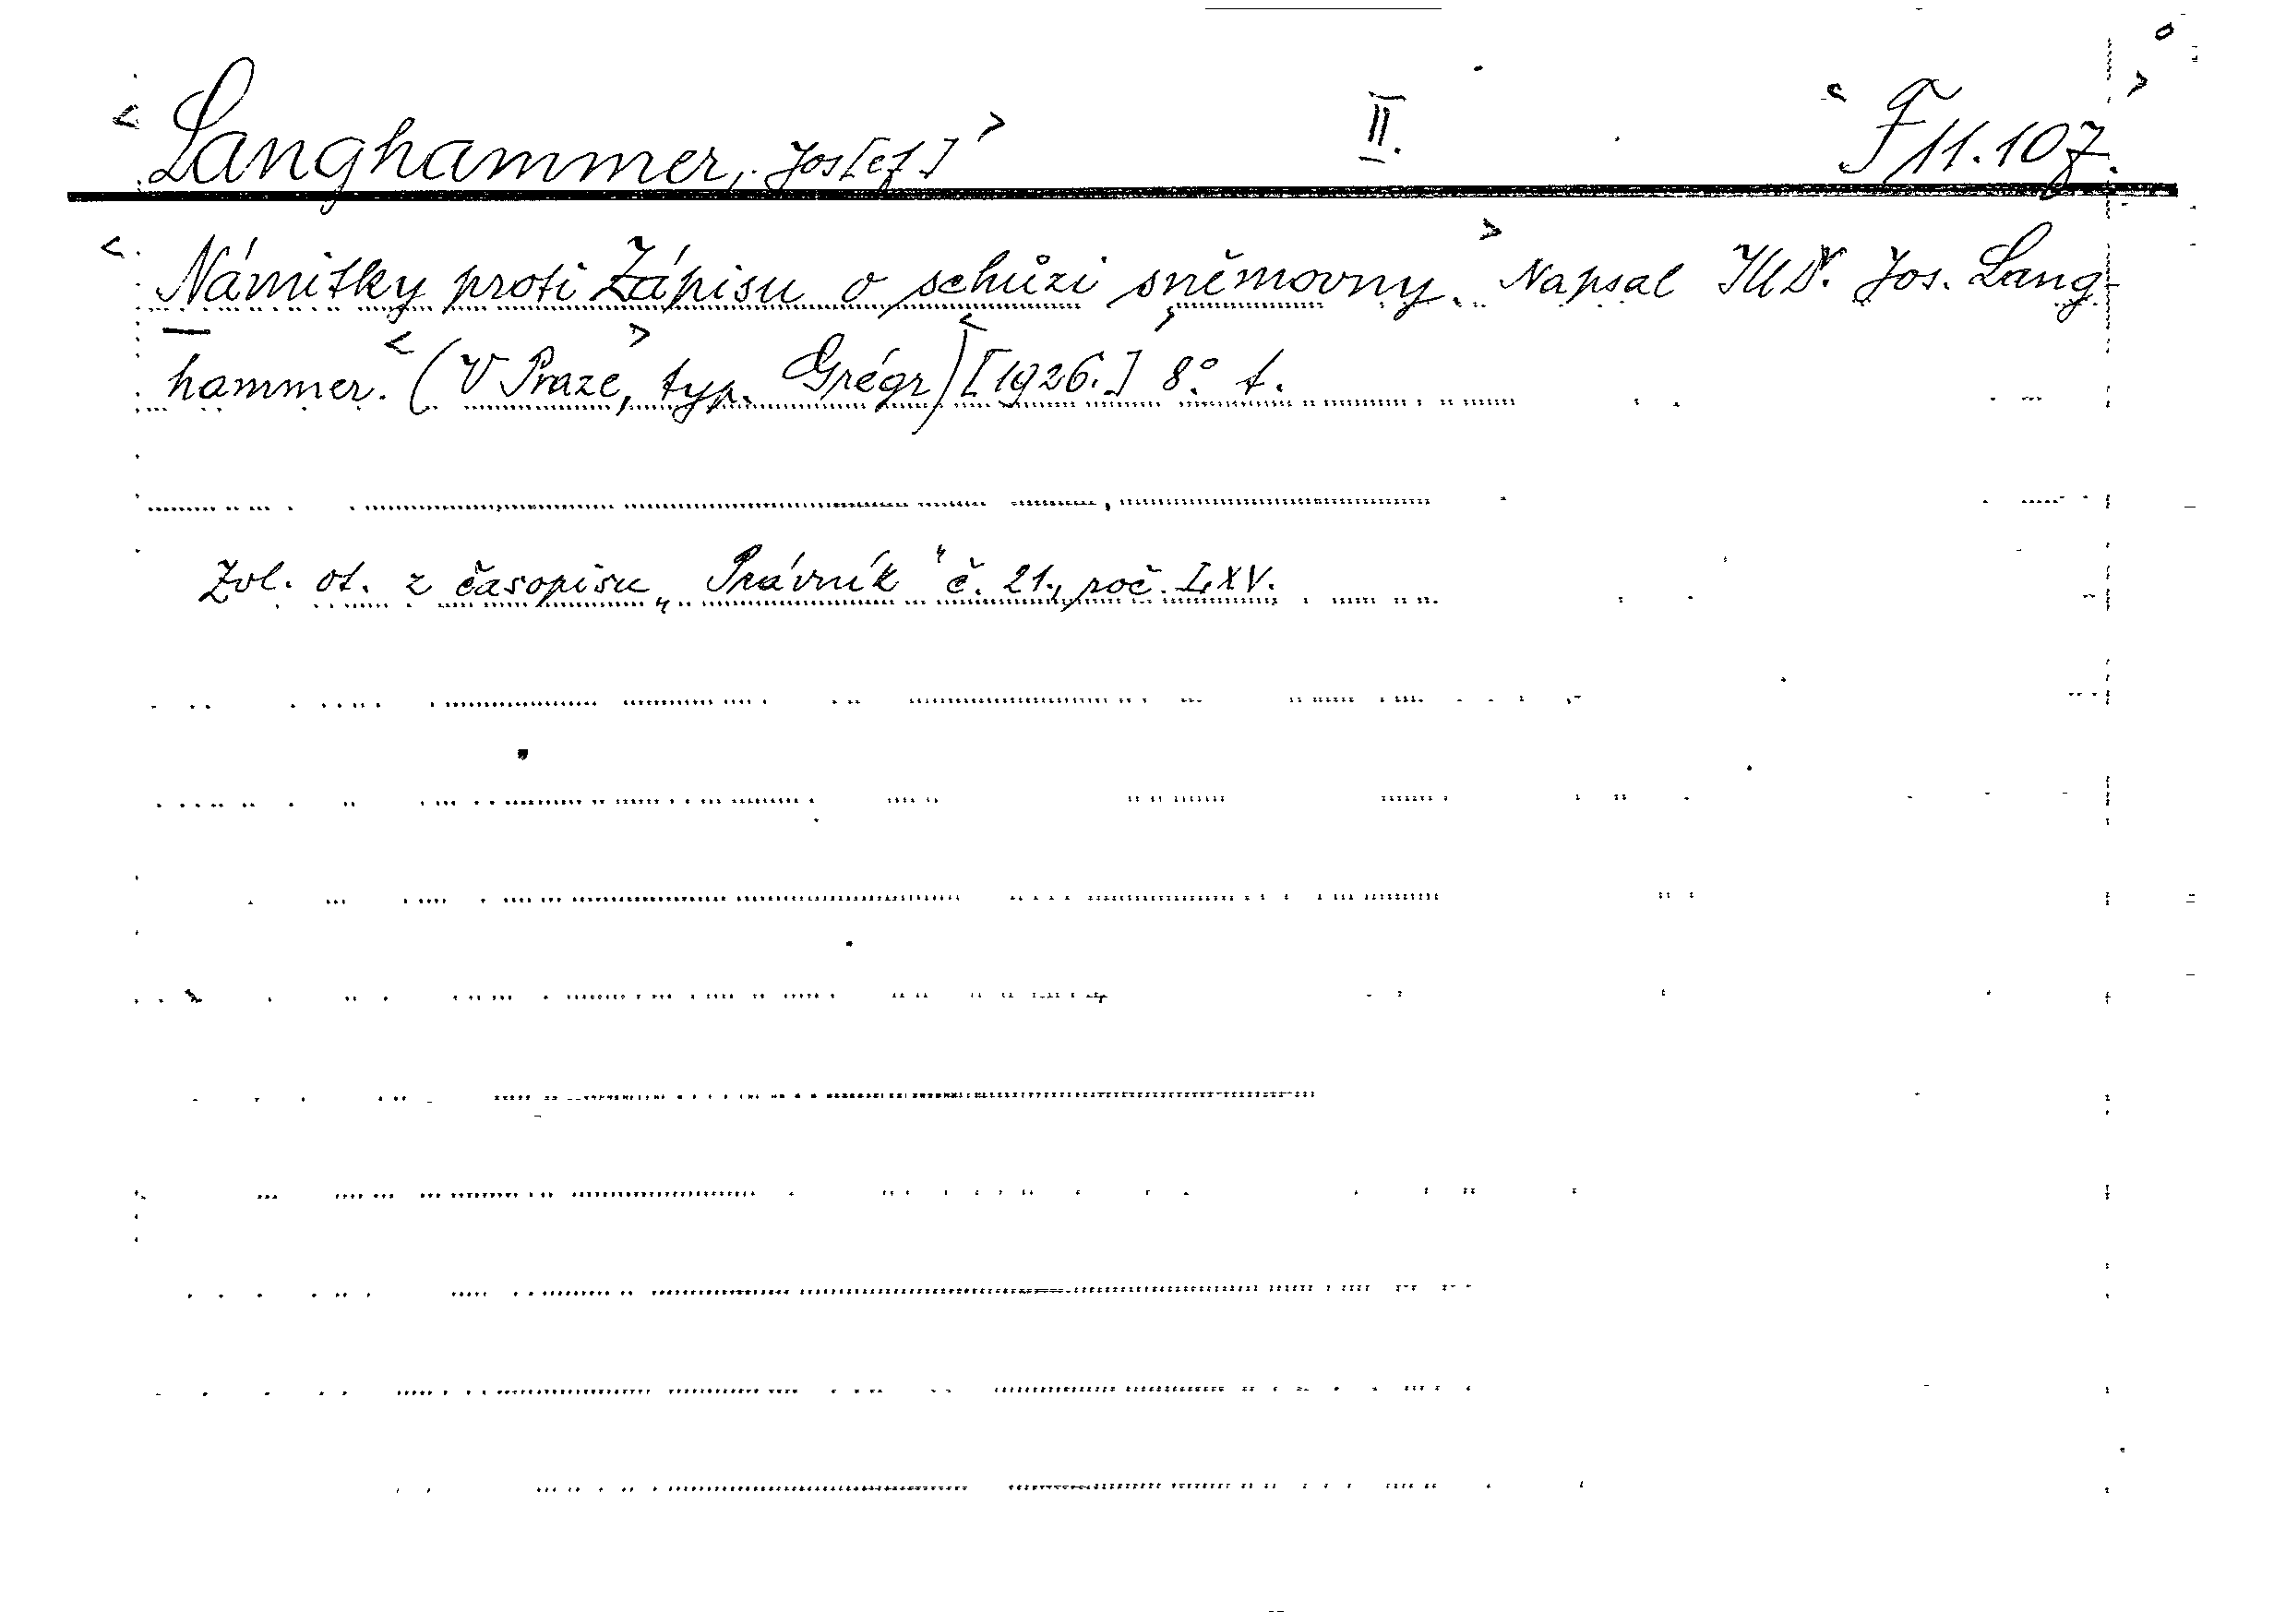 < Langhammer, Jos[ef] > II. < F 11.107. >
< Námitky proti Zápisu o schůzi sněmovny. > Napsal JUDr. Jos. Lang-
hammer. < (V Praze, > typ. Grégr) < [1926.] > 8° t.
Zvl. ot. z časopisu „Právník" č. 21., roč. LXV.